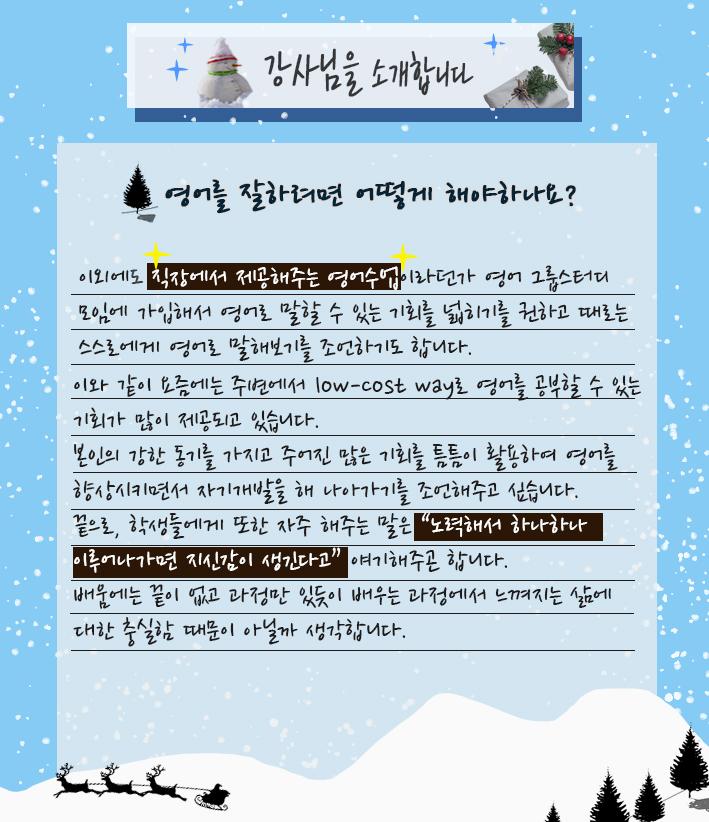 강사님을 소개합니다
영어를 잘하려면 어떻게 해야하나요?
이외에도 직장에서 제공해주는 영어수업이라던가 영어 그룹스터디
모임에 가입해서 영어로 말할 수 있는 기회를 넓히기를 권하고 때로는
스스로에게 영어로 말해보기를 조언하기도 합니다.
이와 같이 요즘에는 주변에서 low-cost way로 영어를 공부할 수 있는
기회가 많이 제공되고 있습니다.
본인의 강한 동기를 가지고 주어진 많은 기회를 틈틈이 활용하여 영어를
향상시키면서 자기개발을 해 나아가기를 조언해주고 싶습니다.
끝으로, 학생들에게 또한 자주 해주는 말은 “노력해서 하나하나
이루어나가면 자신감이 생긴다고” 얘기해주곤 합니다.
배움에는 끝이 없고 과정만 있듯이 배우는 과정에서 느껴지는 삶에
대한 충실함 때문이 아닐까 생각합니다.